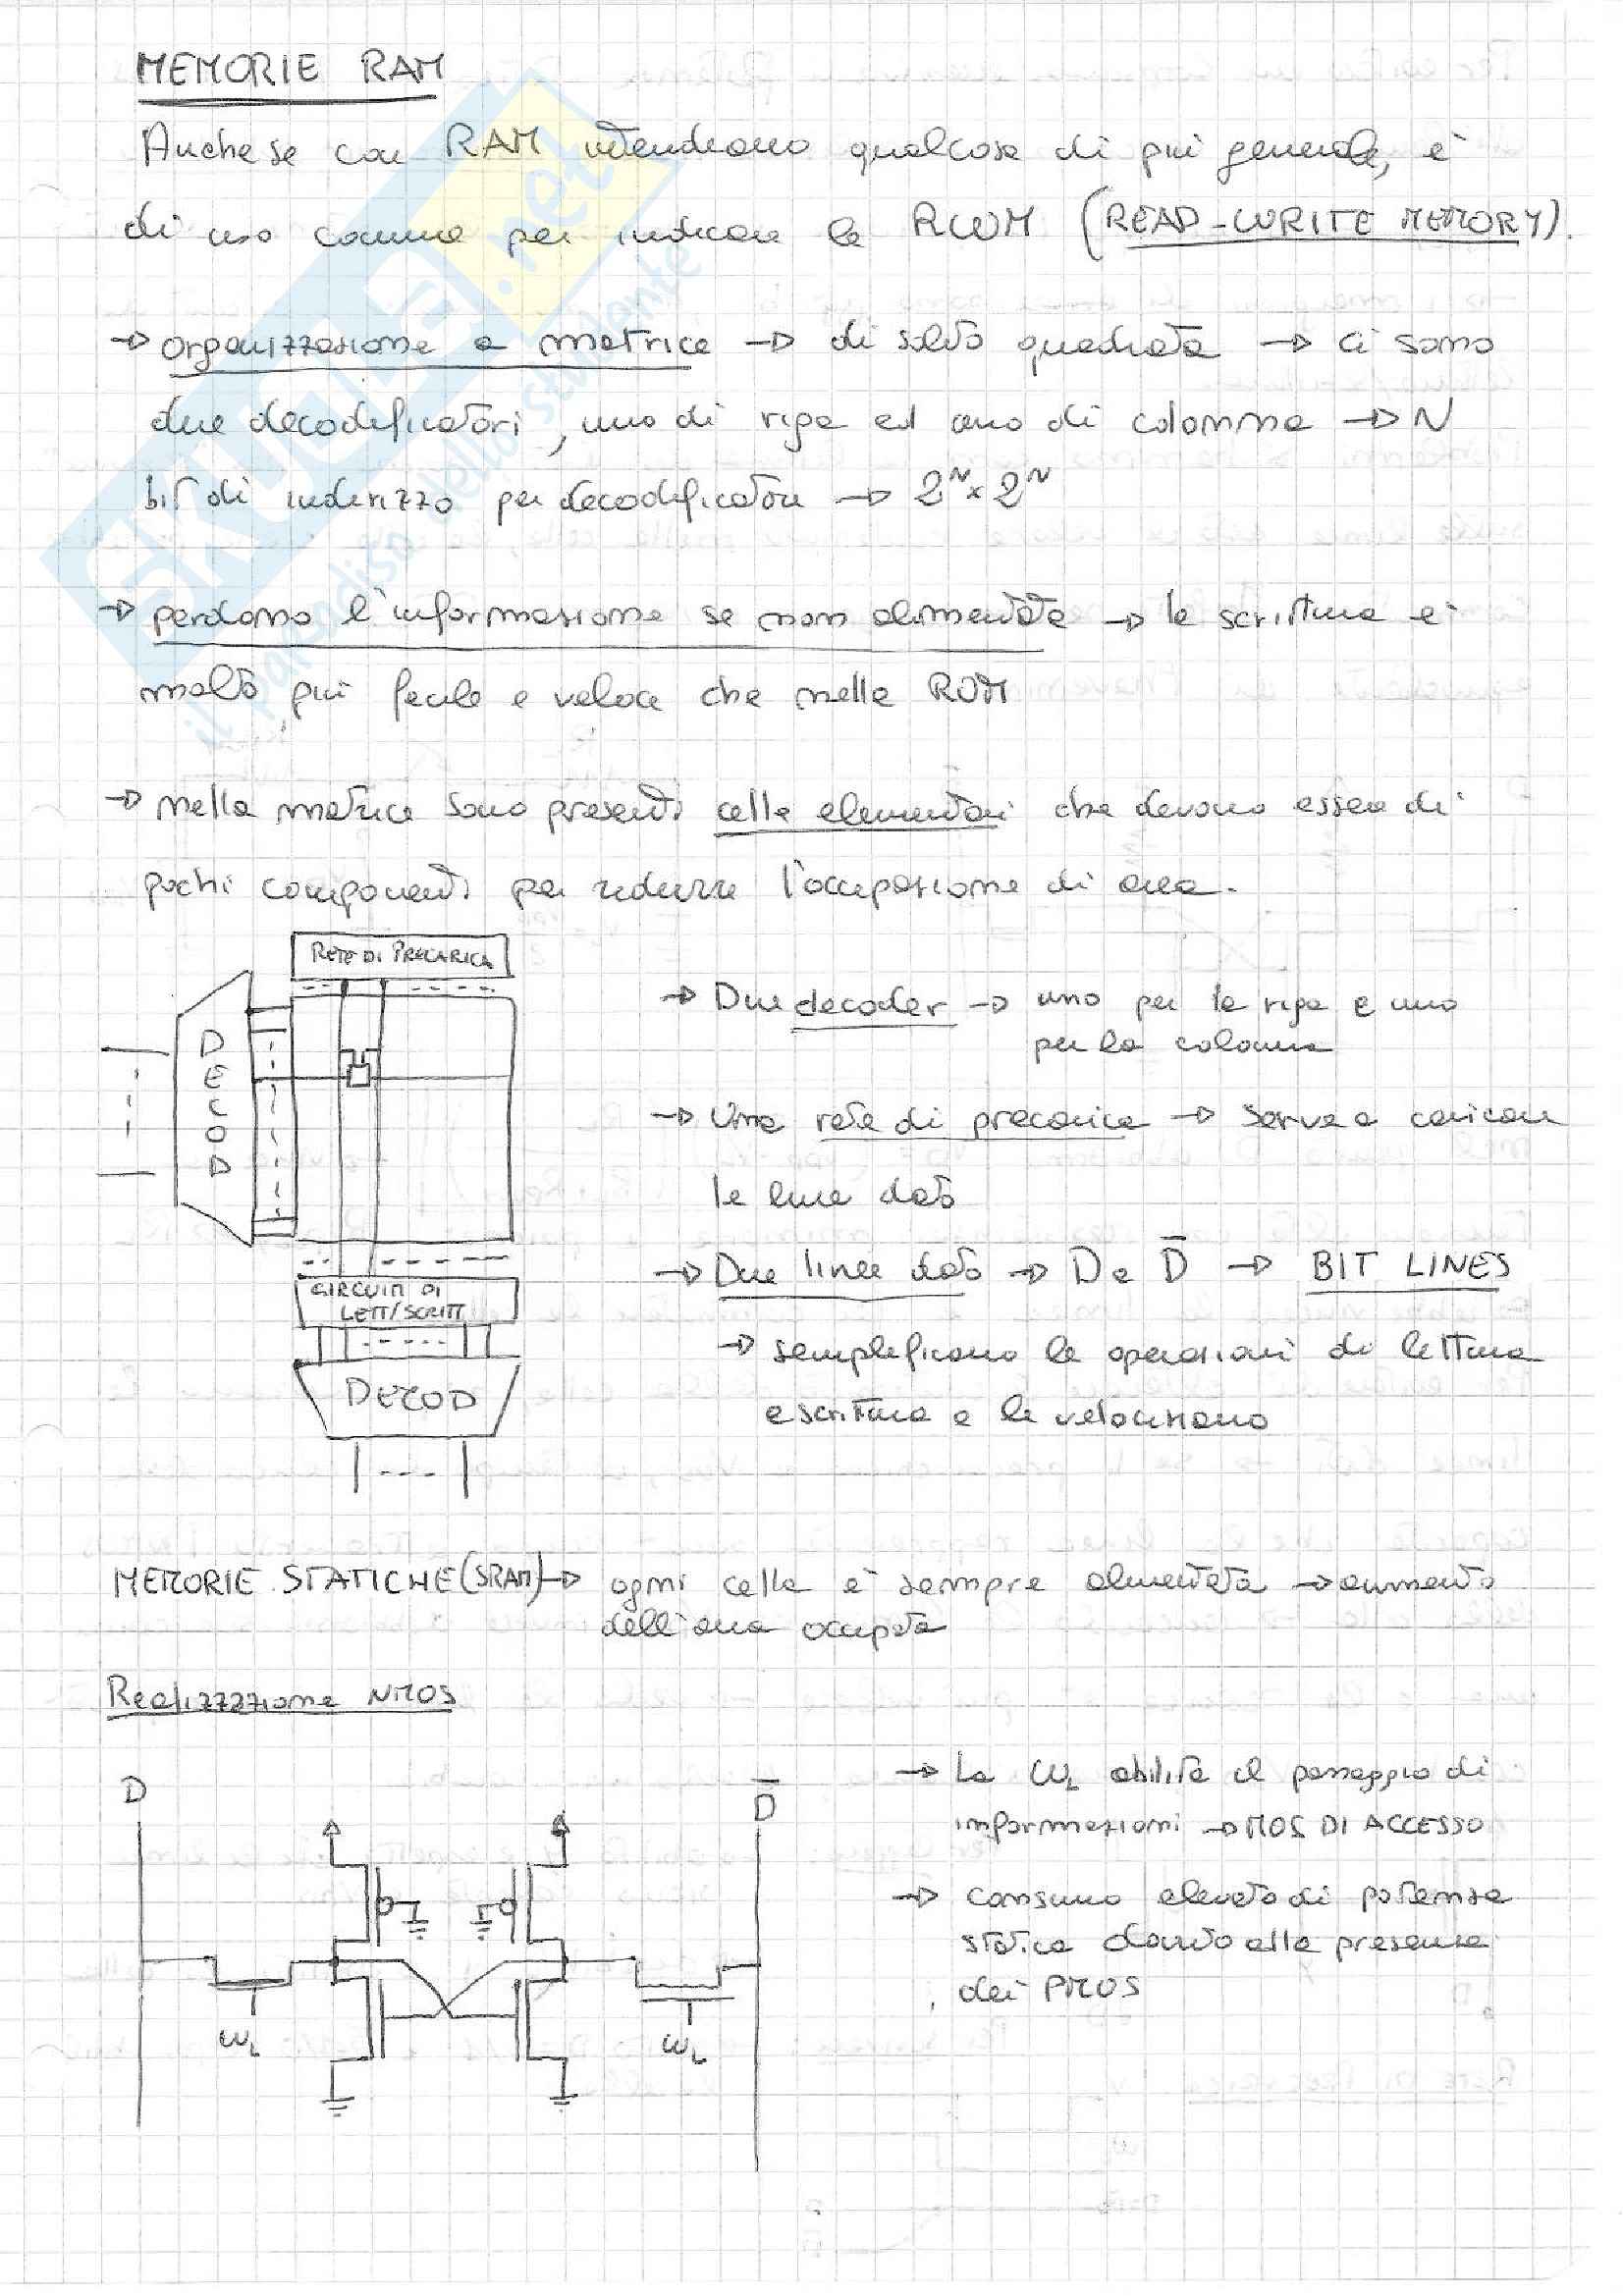 MEMORIE RAM
Anche se con RAM intendiamo qualcosa di più generale, è
di uso comune per indicare le RWM (READ-WRITE MEMORY).
→ organizzazione a matrice → di solito quadrata → ci sono
due decodificatori, uno di riga ed uno di colonna → N
bit di indirizzo per decodificatore → 2^N x 2^N
→ perdono l'informazione se non alimentate → la scrittura è
molto più facile e veloce che nelle ROM
→ nella matrice sono presenti celle elementari che devono essere di
pochi componenti per ridurre l'occupazione di area.
RETE DI PRECARICA
DECOD
CIRCUITI DI
LETT/SCRITT
DECOD
→ Due decoder → uno per la riga e uno
per la colonna
→ Una rete di precarica → serve a caricare
le linee dato
→ Due linee dato → D e D̅ → BIT LINES
→ semplificano le operazioni di lettura
e scrittura e le velocizzano
MEMORIE STATICHE (SRAM) → ogni cella è sempre alimentata → aumento
dell'area occupata
Realizzazione NMOS
D
D̅
WL
WL
→ La WL abilita il passaggio di
informazioni → MOS DI ACCESSO
→ Consumo elevato di potenza
statica dovuto alla presenza
dei PMOS
SKUOLA.net
il paradiso dello studente